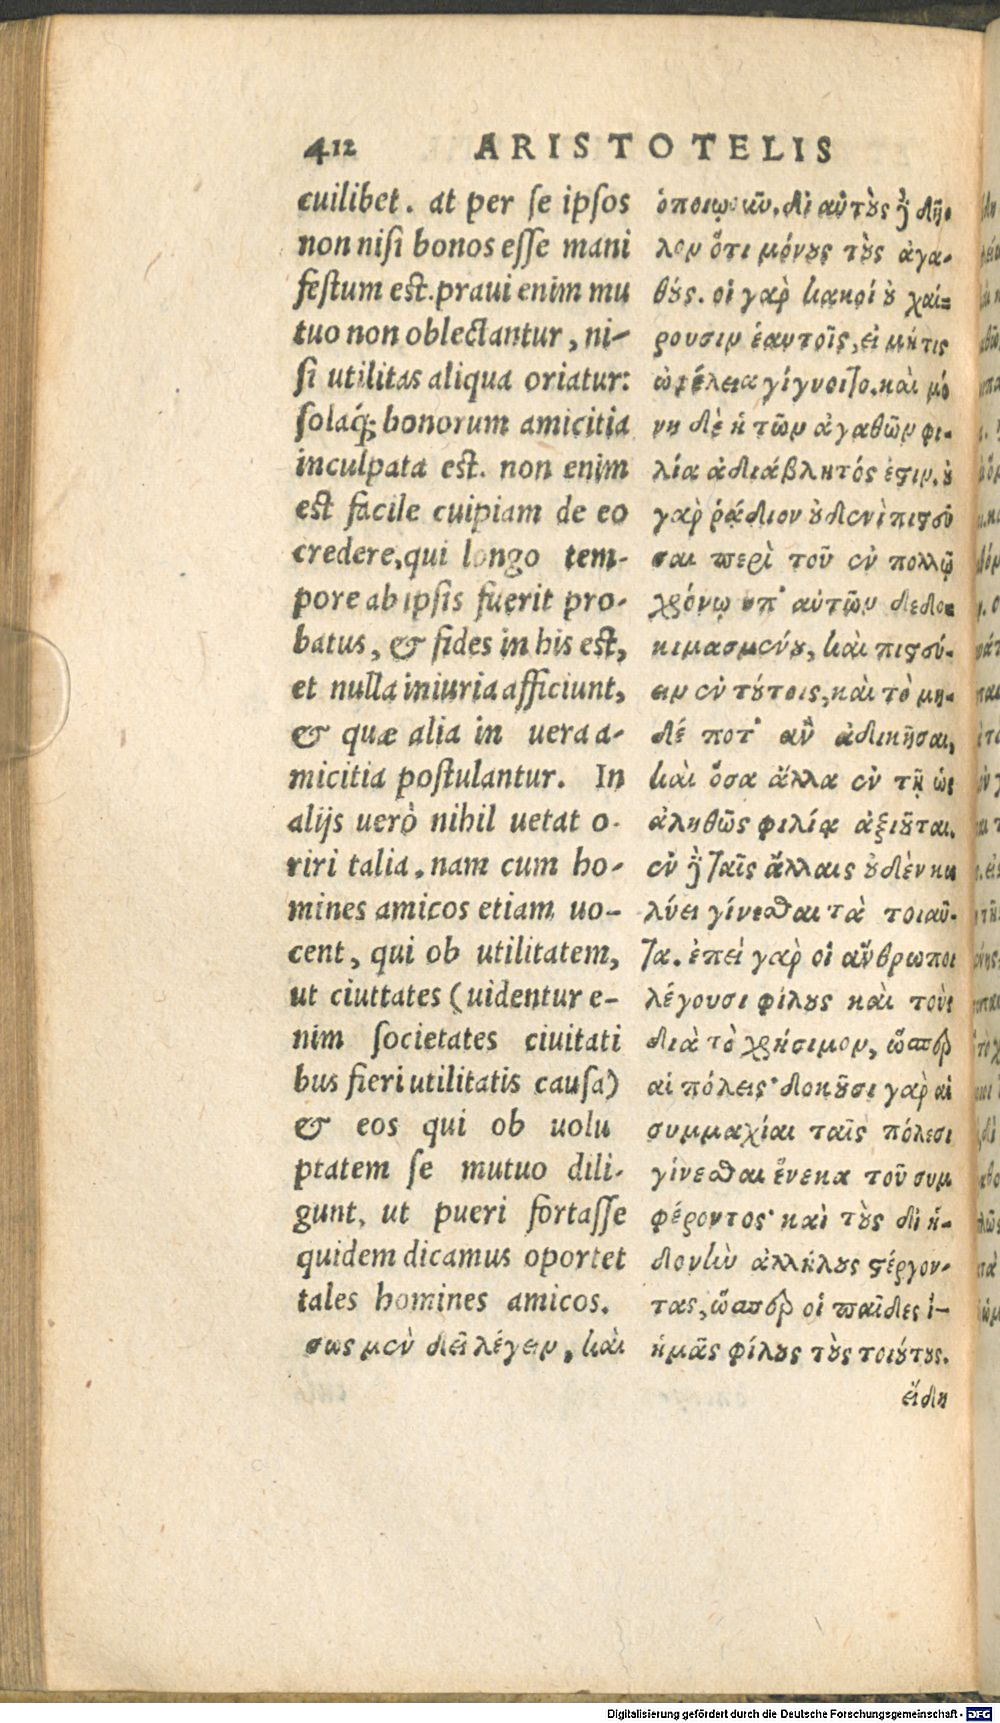 412 ARISTOTELIS
cuilibet. at per se ipsos
non nisi bonos esse mani
festum est. praui enim mu
tuo non oblectantur, ni-
si utilitas aliqua oriatur:
solaq́; bonorum amicitia
inculpata est. non enim
est facile cuipiam de eo
credere, qui longo tem-
pore ab ipsis fuerit pro-
batus, & fides in his est,
et nulla iniuria afficiunt,
& quæ alia in uera a-
micitia postulantur. In
alijs uerò nihil uetat o-
riri talia. nam cum ho-
mines amicos etiam uo-
cent, qui ob utilitatem,
ut ciuttates (uidentur e-
nim societates ciuitati
bus fieri utilitatis causa)
& eos qui ob uolu
ptatem se mutuo dili-
gunt, ut pueri fortasse
quidem dicamus oportet
tales homines amicos.
ὁποιῳοιῶν. δι' αὑτοὺς δὲ δῆ-
λον ὅτι μόνους τοὺς ἀγα-
θούς. οἱ γὰρ κακοί οὐ χαί=
ρουσιν ἑαυτοῖς, εἰ μή τις
ὠφέλεια γίγνοιτο. καὶ μό
νη δὲ ἡ τῶν ἀγαθῶν φι-
λία ἀδιάβλητός ἐστιν. οὐ
γὰρ ῥᾴδιον οὐδενὶ πιστεῦ
σαι περὶ τοῦ ἐν πολλῷ
χρόνῳ ὑπ' αὐτῶν δεδο-
κιμασμένου, καὶ πιστεύ-
ειν ἐν τούτοις, καὶ τὸ μη-
δέ ποτ' ἂν ἀδικῆσαι,
καὶ ὅσα ἄλλα ἐν τῇ ὡς
ἀληθῶς φιλίᾳ ἀξιοῦται.
ἐν δὲ ταῖς ἄλλαις οὐδὲν κω
λύει γίνεσθαι τὰ τοιαῦ-
τα. ἐπεὶ γὰρ οἱ ἄνθρωποι
λέγουσι φίλους καὶ τοὺς
διὰ τὸ χρήσιμον, ὥσπερ
αἱ πόλεις· δοκοῦσι γὰρ αἱ
συμμαχίαι ταῖς πόλεσι
γίνεσθαι ἕνεκα τοῦ συμ
φέροντος· καὶ τοὺς δι' ἡ-
δονὴν ἀλλήλους στέργον-
τας, ὥσπερ οἱ παῖδες ἴ-
σως μὲν δεῖ λέγειν, καὶ ἡμᾶς φίλους τοὺς τοιούτους.
εἴδη
Digitalisierung gefördert durch die Deutsche Forschungsgemeinschaft - DFG